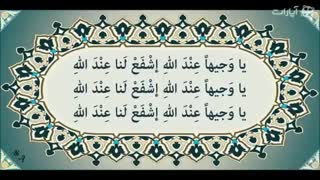 آپارات
يا وَجيهاً عِنْدَ اللهِ إشْفَعْ لَنا عِنْدَ اللهِ
يا وَجيهاً عِنْدَ اللهِ إشْفَعْ لَنا عِنْدَ اللهِ
يا وَجيهاً عِنْدَ اللهِ إشْفَعْ لَنا عِنْدَ اللهِ